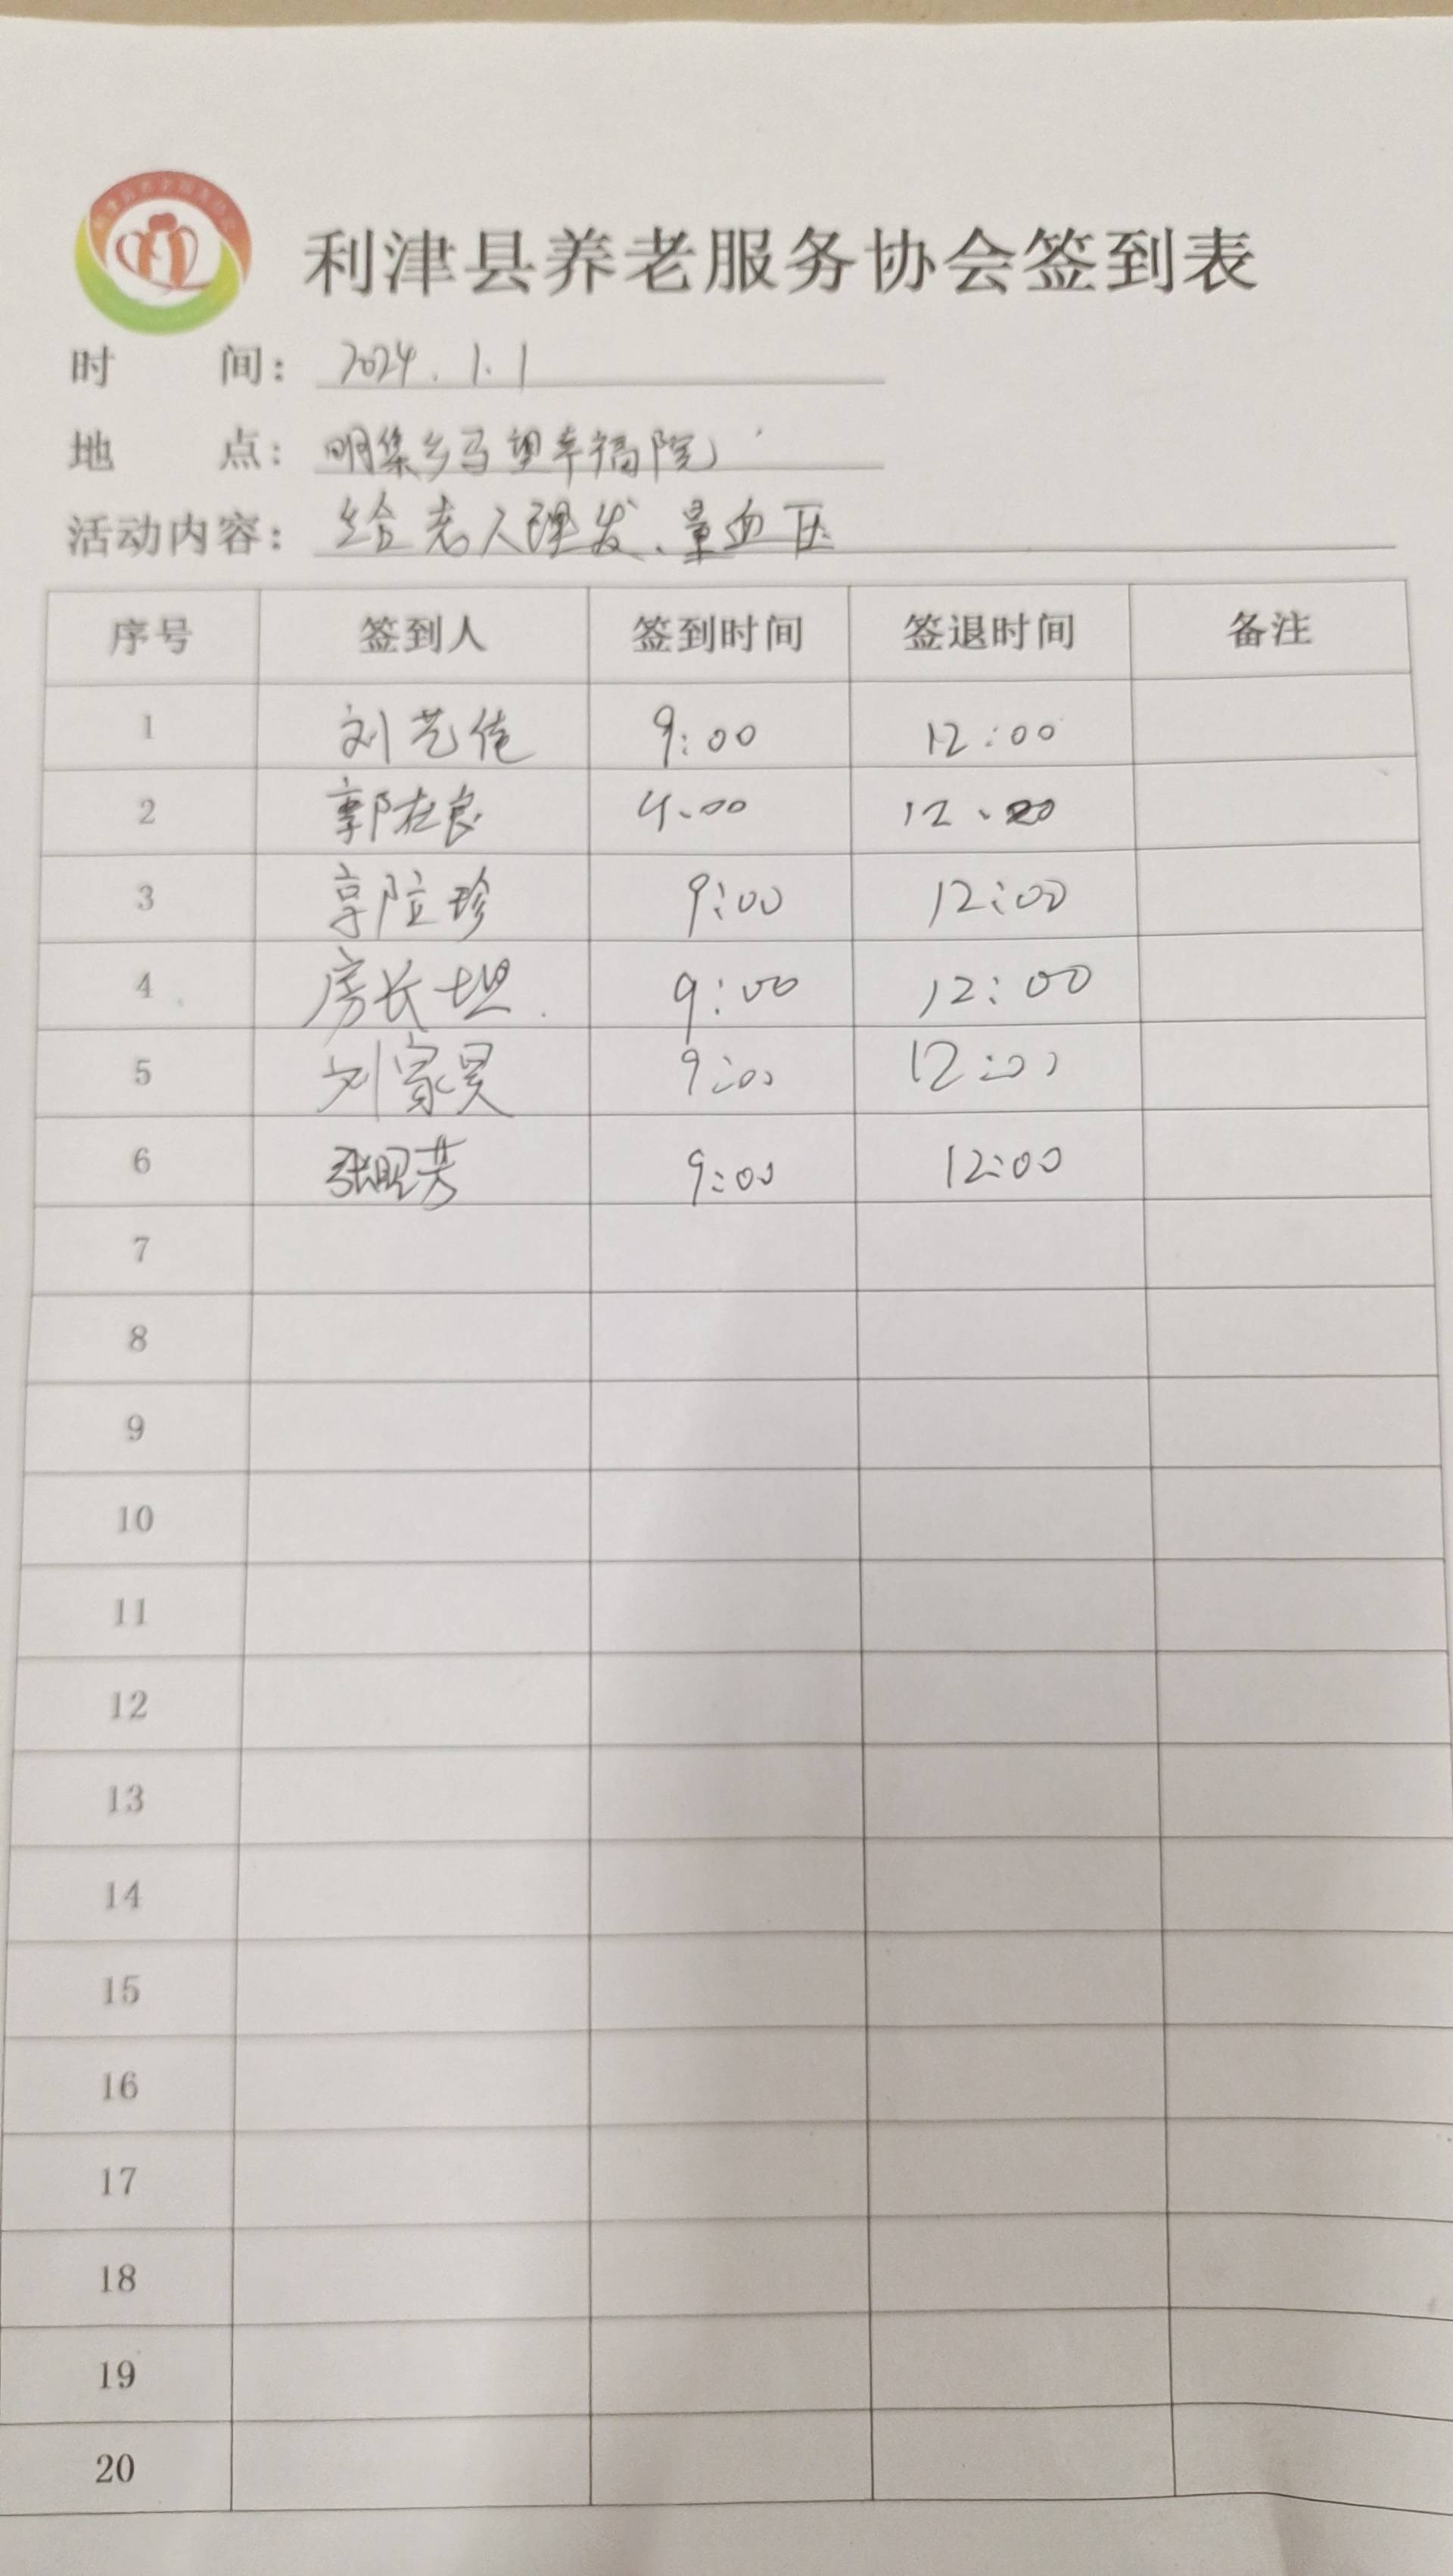 利津县养老服务协会签到表
时 间: 2024.1.1
地 点: 明集乡马望幸福院
活动内容: 给老人理发、量血压
序号 签到人 签到时间 签退时间 备注
1 刘艺佳 9:00 12:00
2 郭在良 9.00 12、00
3 郭位珍 9:00 12:00
4 房长坦 9:00 12:00
5 刘家昊 9:00 12:00
6 张昭芳 9:00 12:00
7
8
9
10
11
12
13
14
15
16
17
18
19
20